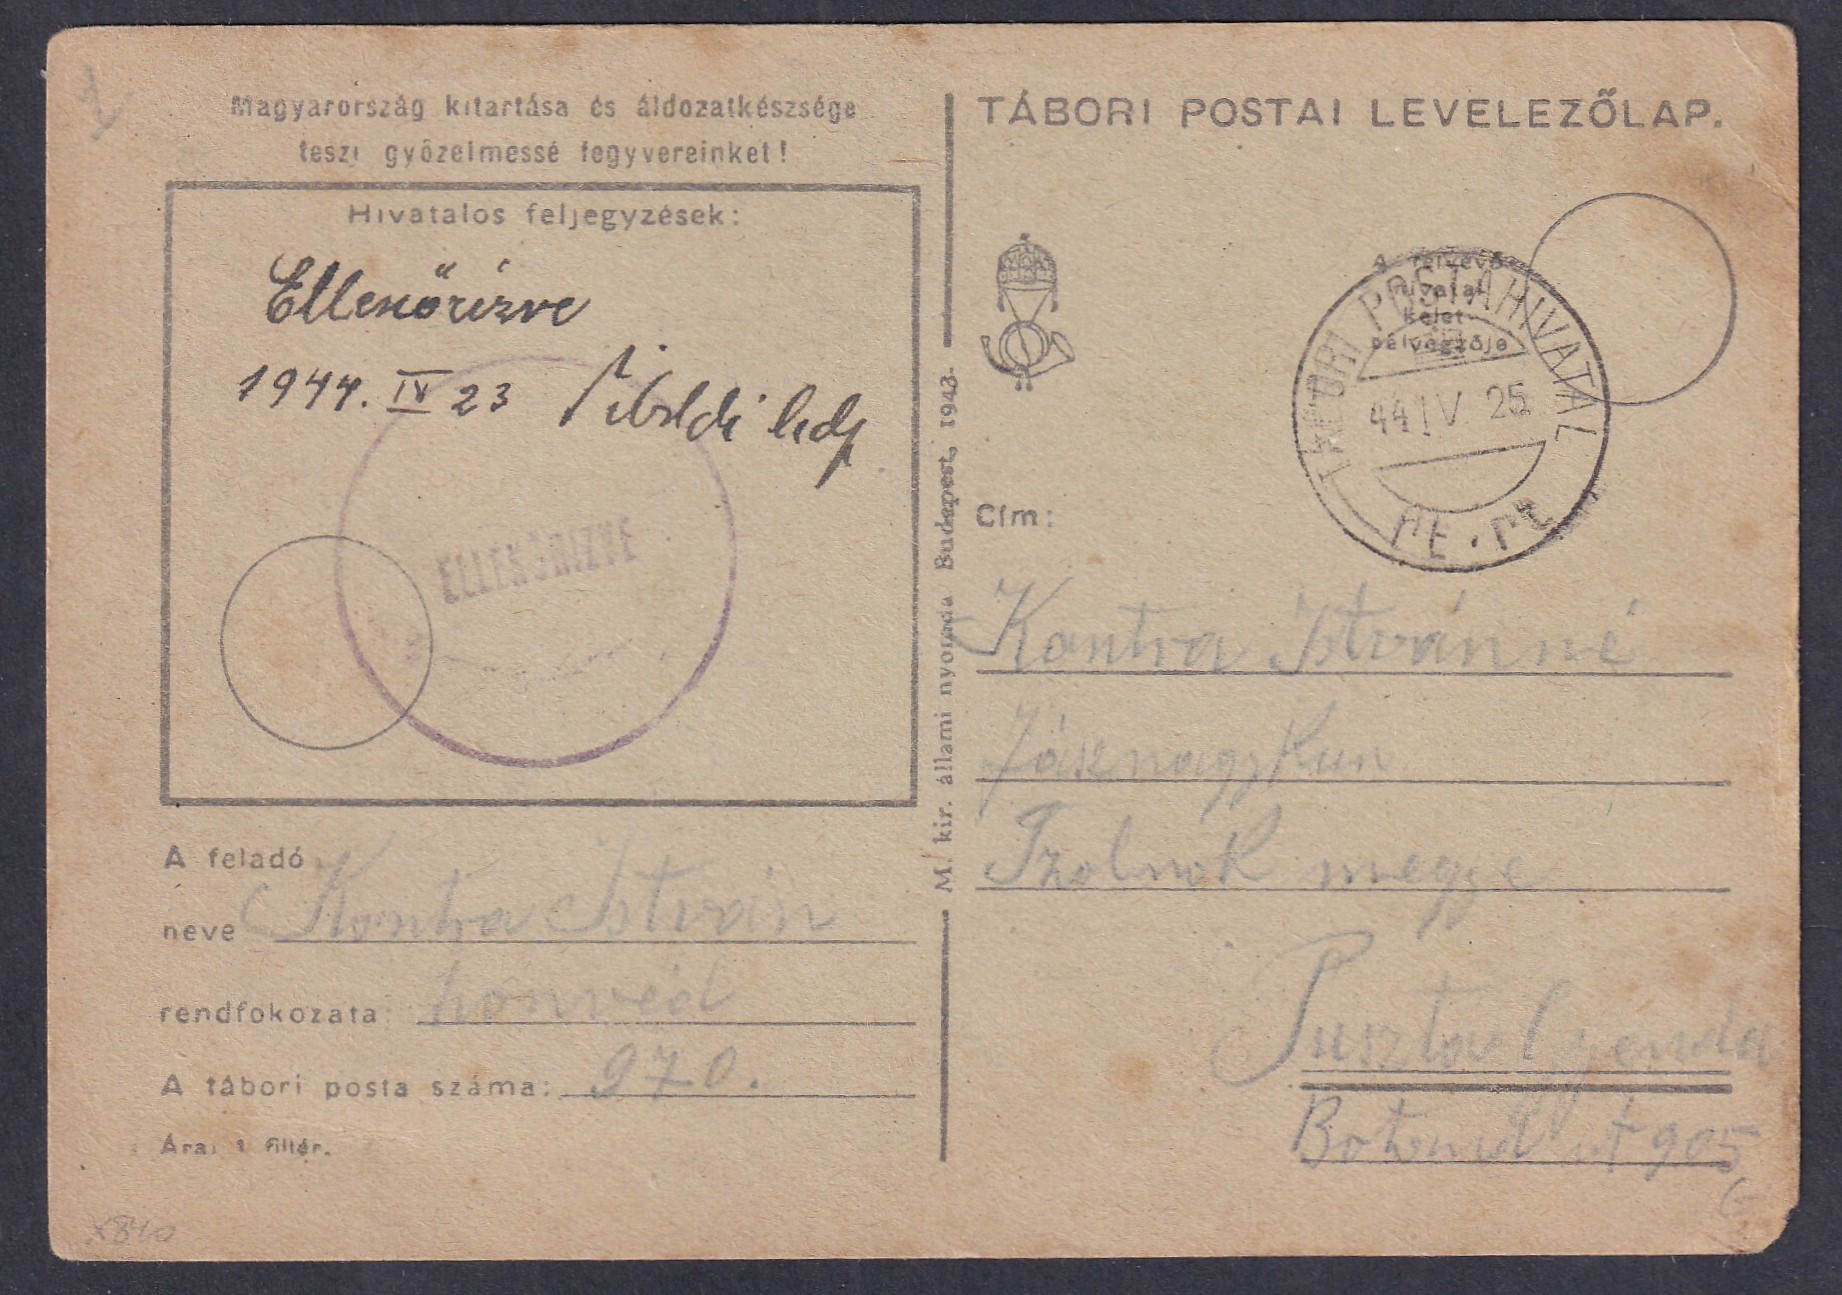 Magyarország kitartása és áldozatkészsége
teszi győzelmessé fegyvereinket!
Hivatalos feljegyzések:
Ellenőrizve
1944. IV 23
ELLENŐRIZVE
A feladó
neve Kontra István
rendfokozata: honvéd
A tábori posta száma: 970.
Ára: fillér.
X840
M. kir. állami nyomda Budapest, 1943.
TÁBORI POSTAI LEVELEZŐLAP.
A felvevő
hivatal
kelet-
bélyegzője
POSTAHIVATAL
44 IV. 25
Cím:
Kontra Istvánné
Jásznagykun
Szolnok megye
Puszta
út 905